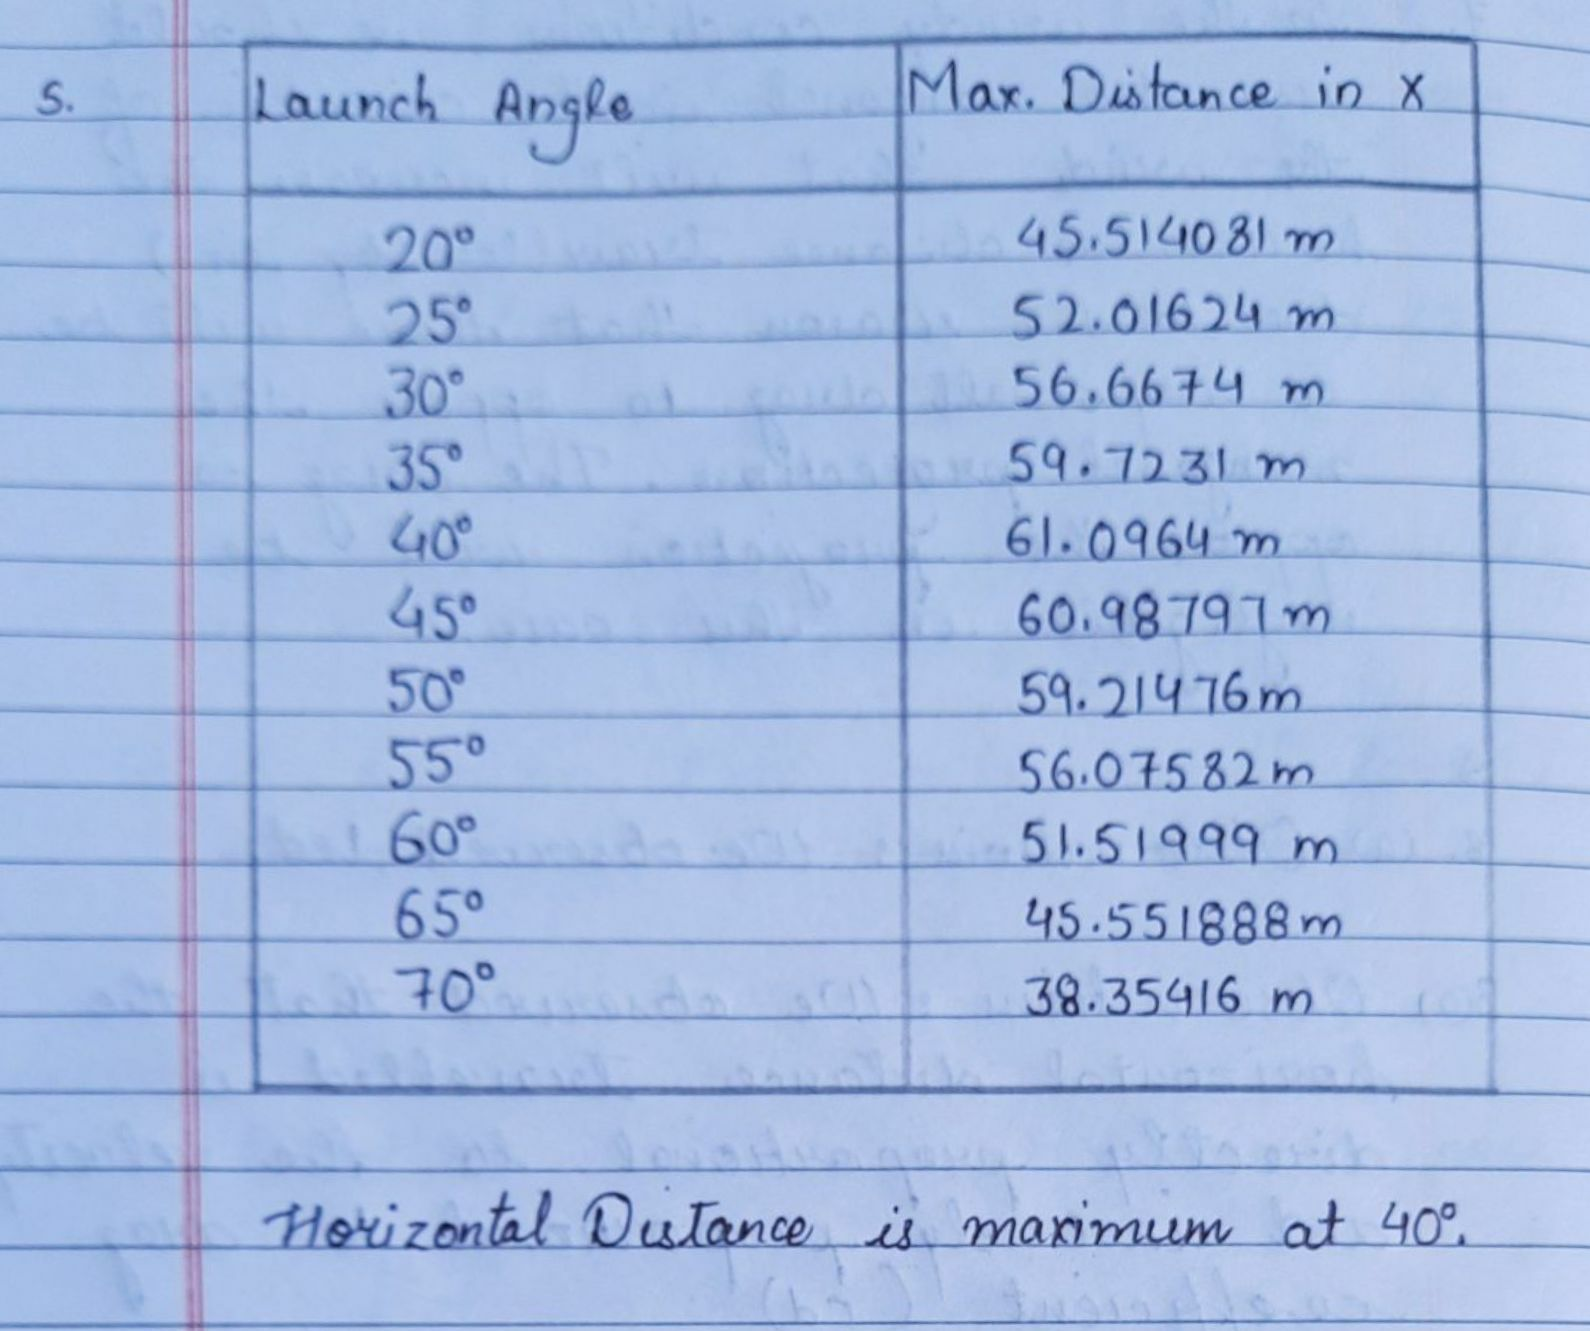 S. Launch Angle Max. Distance in X
20° 45.514081 m
25° 52.01624 m
30° 56.6674 m
35° 59.7231 m
40° 61.0964 m
45° 60.98797 m
50° 59.21476 m
55° 56.07582 m
60° 51.51999 m
65° 45.551888 m
70° 38.35416 m
Horizontal Distance is maximum at 40°.